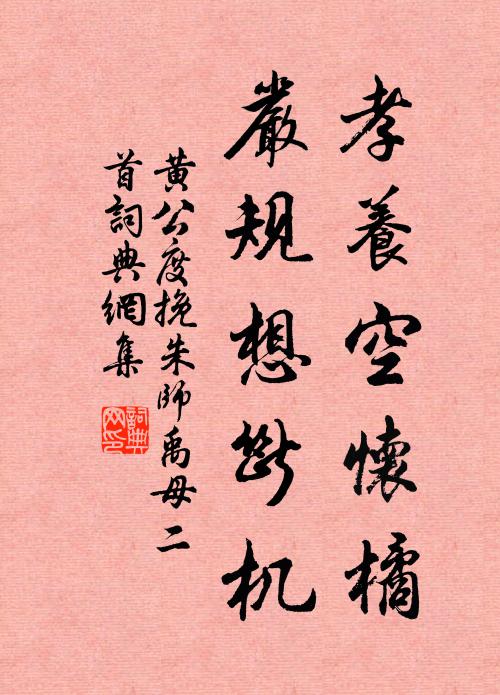 孝養空懷橘
嚴規想斷机
黄公度挽朱師禹母二
首詞典網集
詞典网印